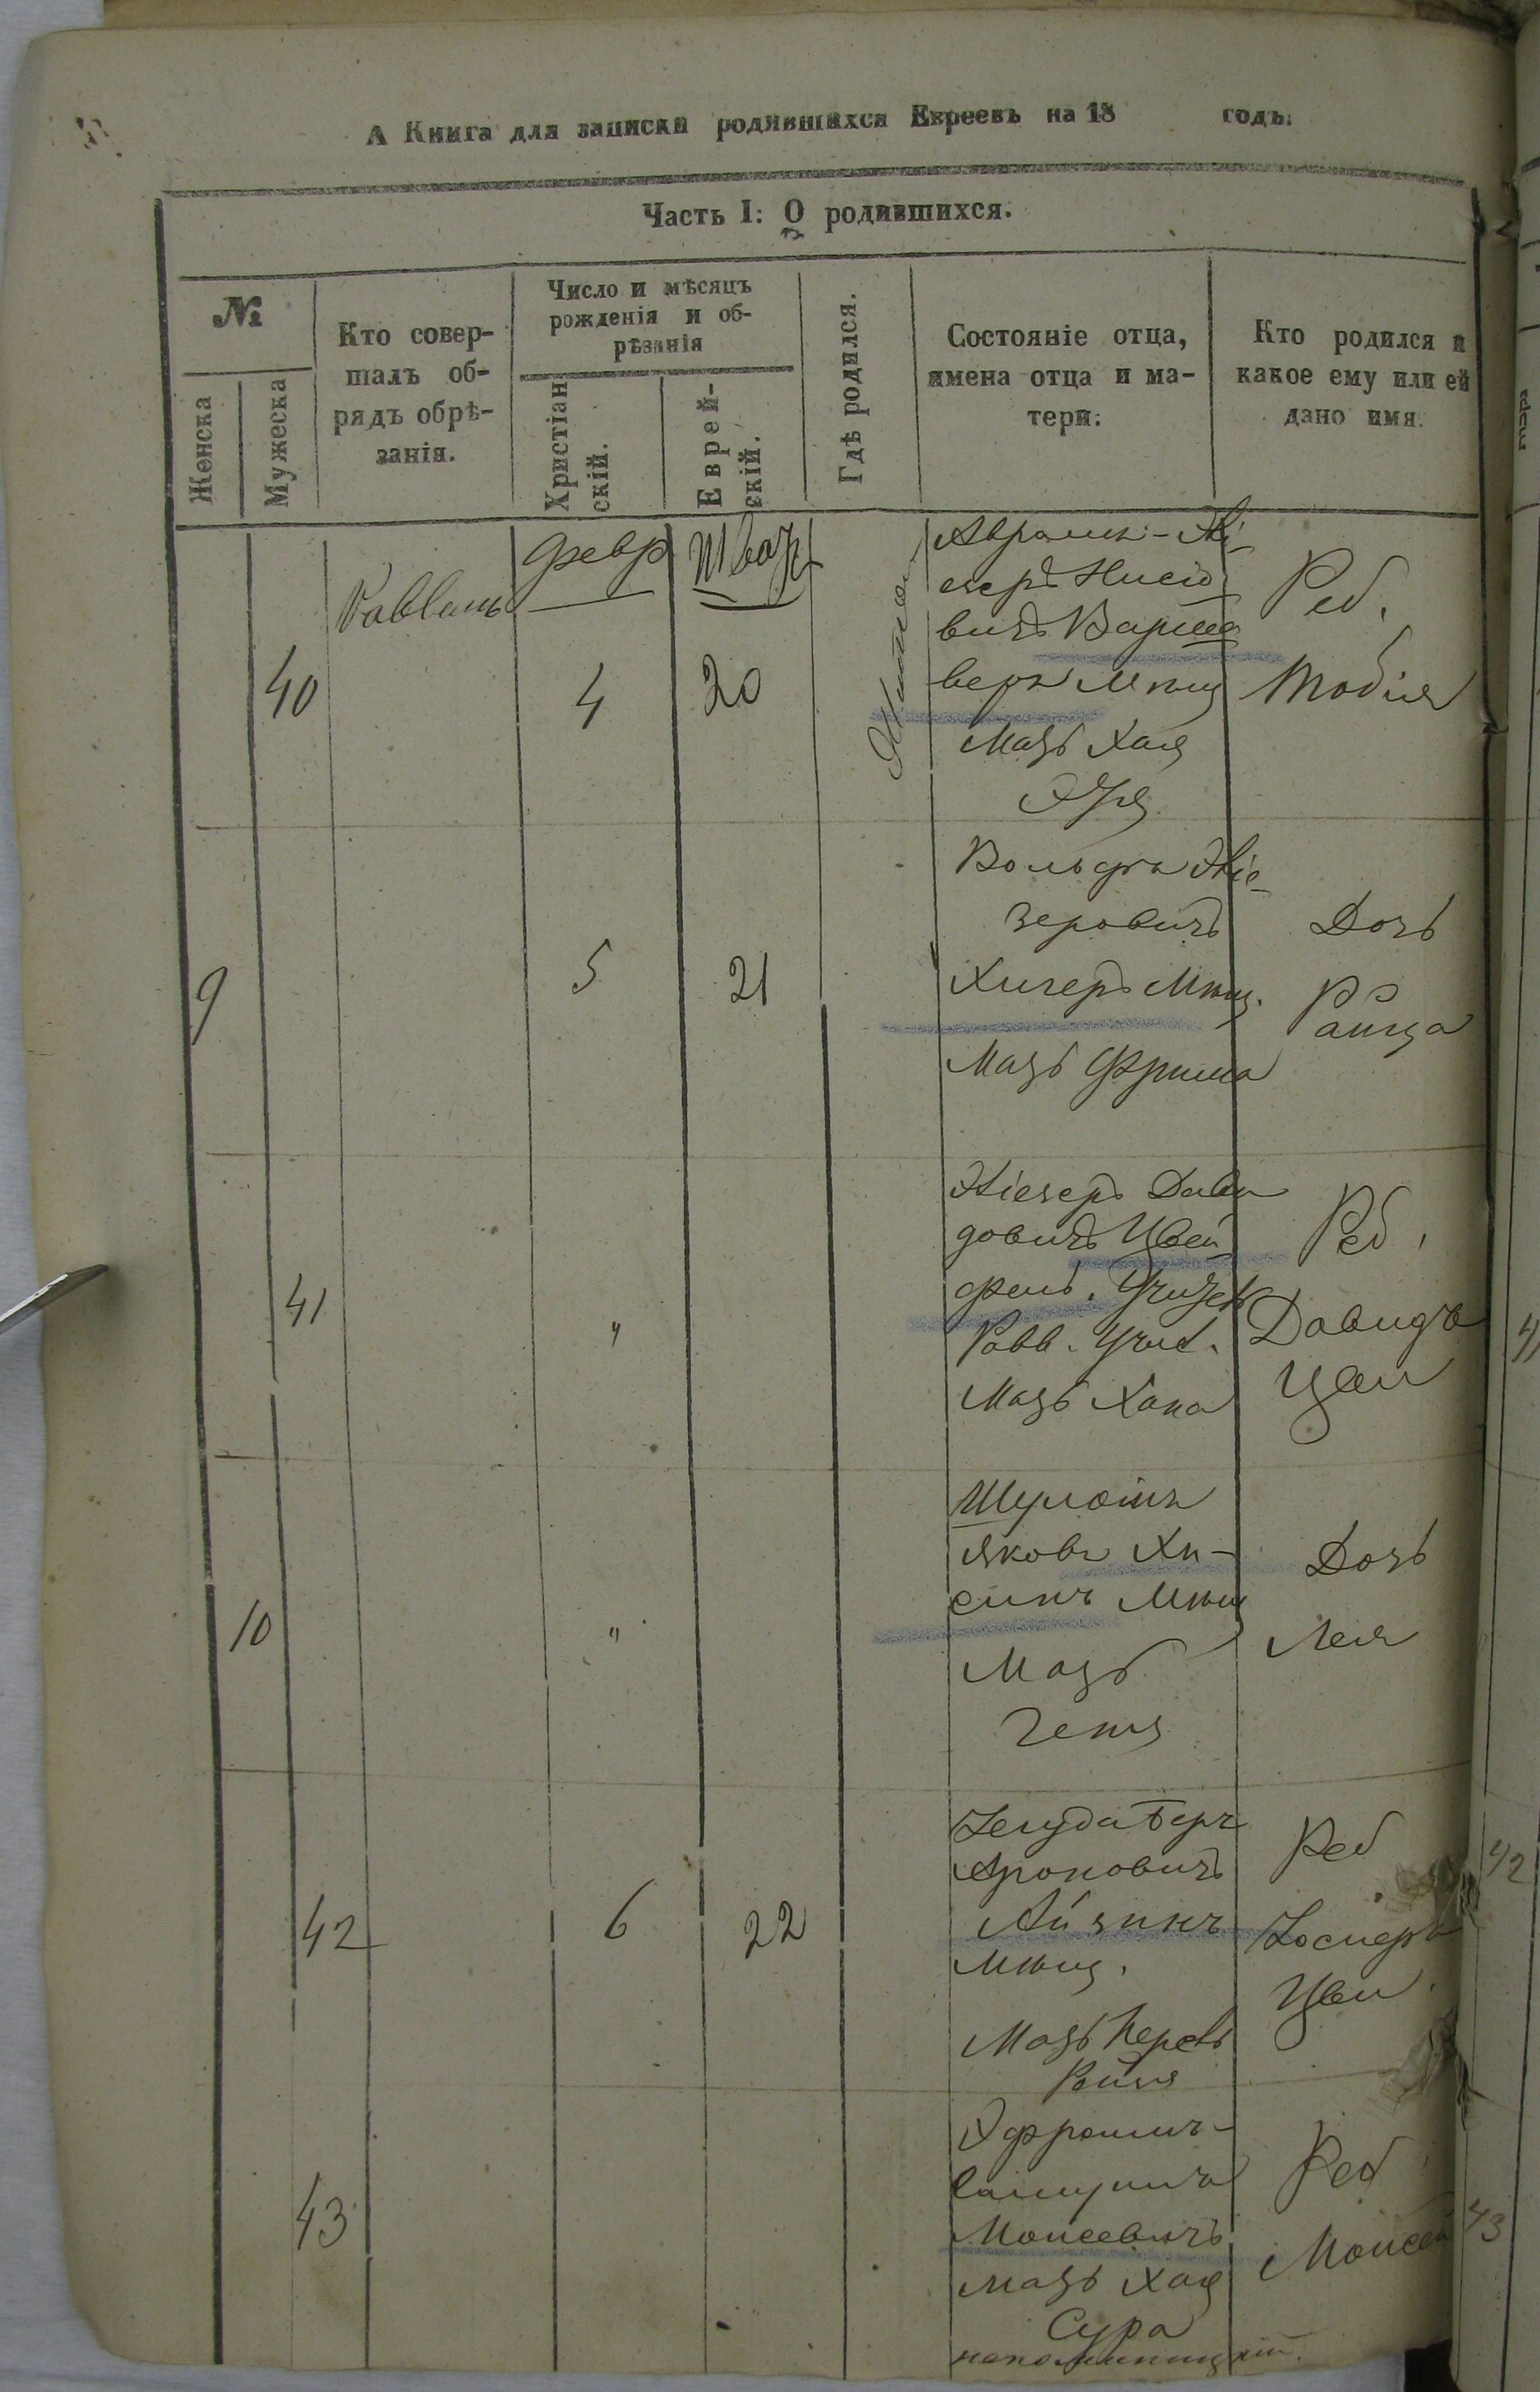 А Книга для записки родившихся Евреевъ на 18 годъ.
Часть I: О родившихся.
№
Женска
Мужеска
Кто совер-
шалъ об-
рядъ обрѣ-
занія.
Число и мѣсяцъ
рожденія и об-
рѣзанія
Христіан
скій.
Еврей-
скій.
Гдѣ родился.
Состояніе отца,
имена отца и ма-
тери.
Кто родился и
какое ему или ей
дано имя.
40
Февр
4
Шват
20
вичъ Варша
веръ Мѣщ
Мать Хая
Реб.
Тобія
9
5
21
Вольфъ
зеровичъ
Мѣщ.
Мать Фрума
Дочь
Раиза
41
"
Дави
довичъ Цвей
фель. Учитель
Равв. Учил.
Мать Хана
Реб.
Давидъ
Цви
10
"
Яковъ Ха-
синъ Мѣщ
Мать
Геня
Дочь
Лея
42
6
22
Іегуда Беръ
Ароновичъ
Айзикъ
Мѣщ.
Мать
Реб
Цви
43
Эфроимъ-
Самуилъ
Моисеевичъ
Мать Хая
Сура
Реб
Моисей
42
43